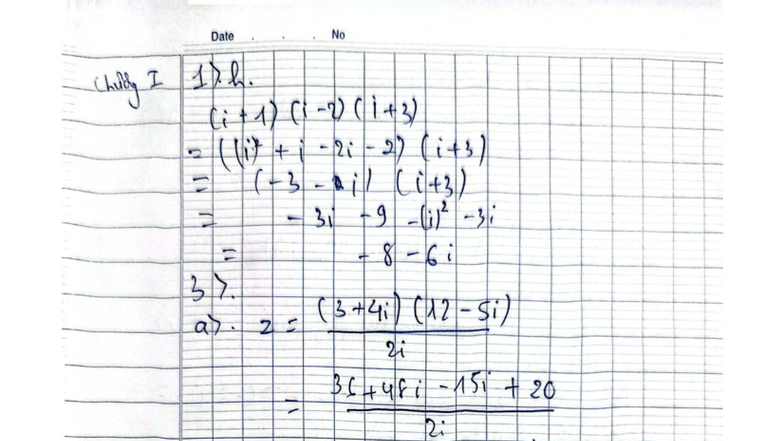 Date . . . No
I
1> h.
(i+1)(i-2)(i+3)
= ((i)² + i - 2i - 2) (i+3)
= (-3 - i) (i+3)
= - 3i - 9 - (i)² - 3i
= - 8 - 6i
3>.
a>. z = (3+4i)(12-5i)
2i
= 36+48i - 15i + 20
2i